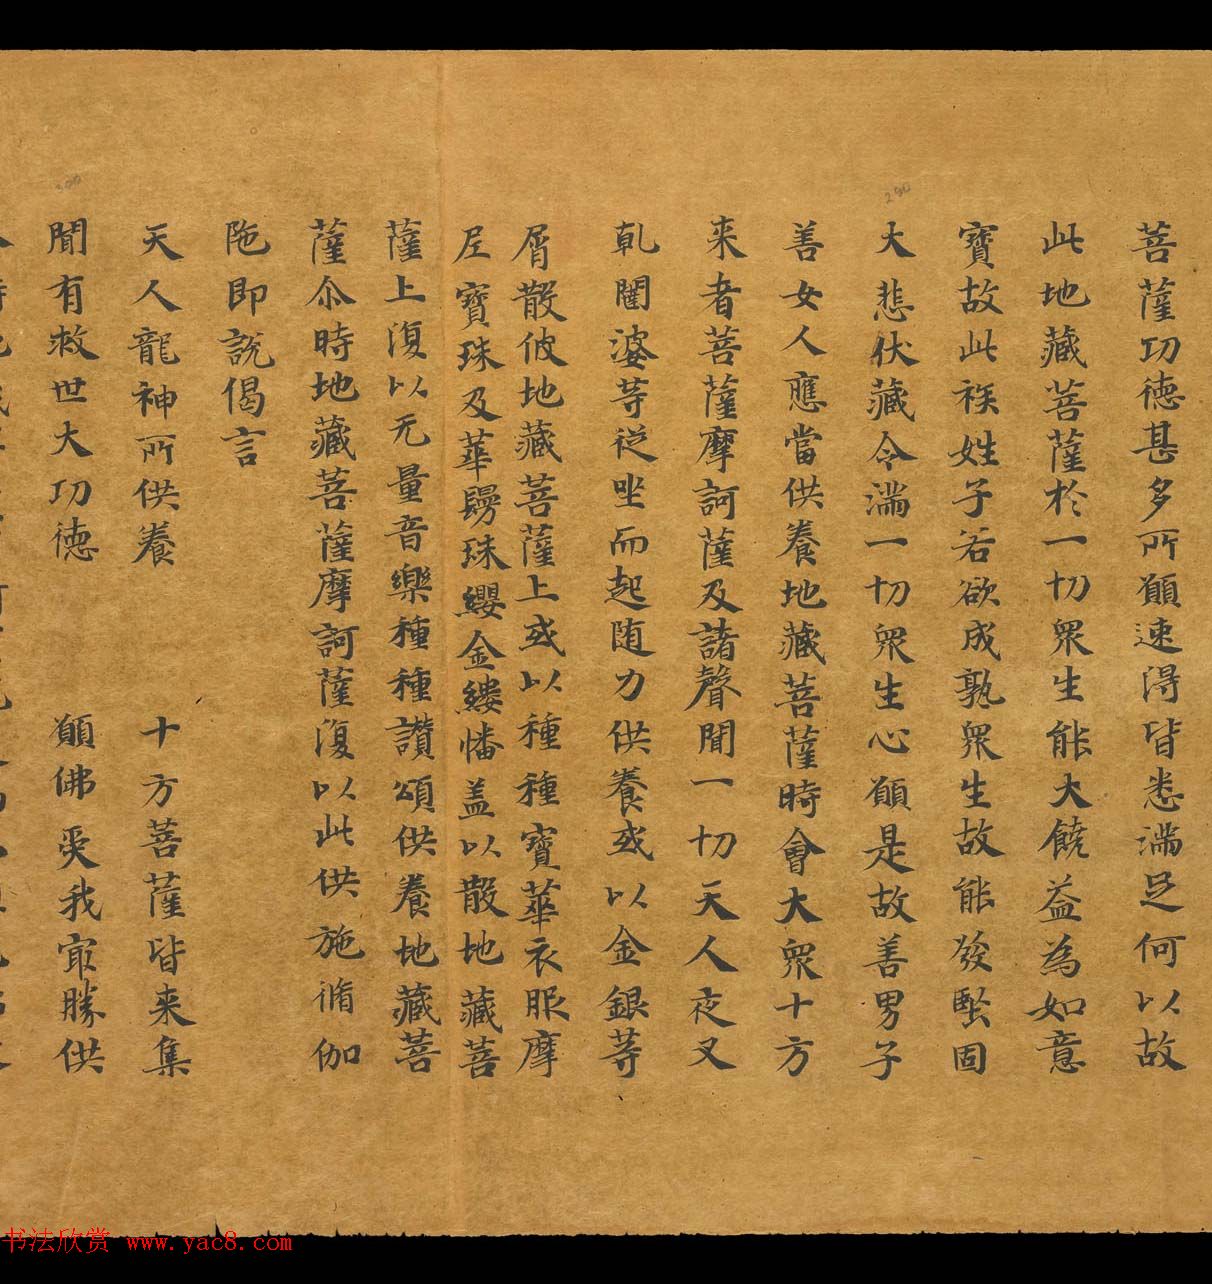 菩薩功德甚多所願速得皆悉満足何以故
此地藏菩薩於一切眾生能大饒益為如意
寶故此族姓子若欲成熟眾生故能發堅固
大悲伏藏令満一切眾生心願是故善男子
善女人應當供養地藏菩薩時會大眾十方
来者菩薩摩訶薩及諸聲聞一切天人夜叉
乹闥婆䓁從坐而起随力供養或以金銀䓁
屑散彼地藏菩薩上或以種種寶華衣服摩
尼寶珠及華鬘珠纓金縷幡盖以散地藏菩
薩上復以无量音樂種種讃頌供養地藏菩
薩尒時地藏菩薩摩訶薩復以此供施脩伽
陁即説偈言
天人龍神所供養 十方菩薩皆来集
聞有救世大功德 願佛受我冣勝供
290
300
书法欣赏 www.yac8.com